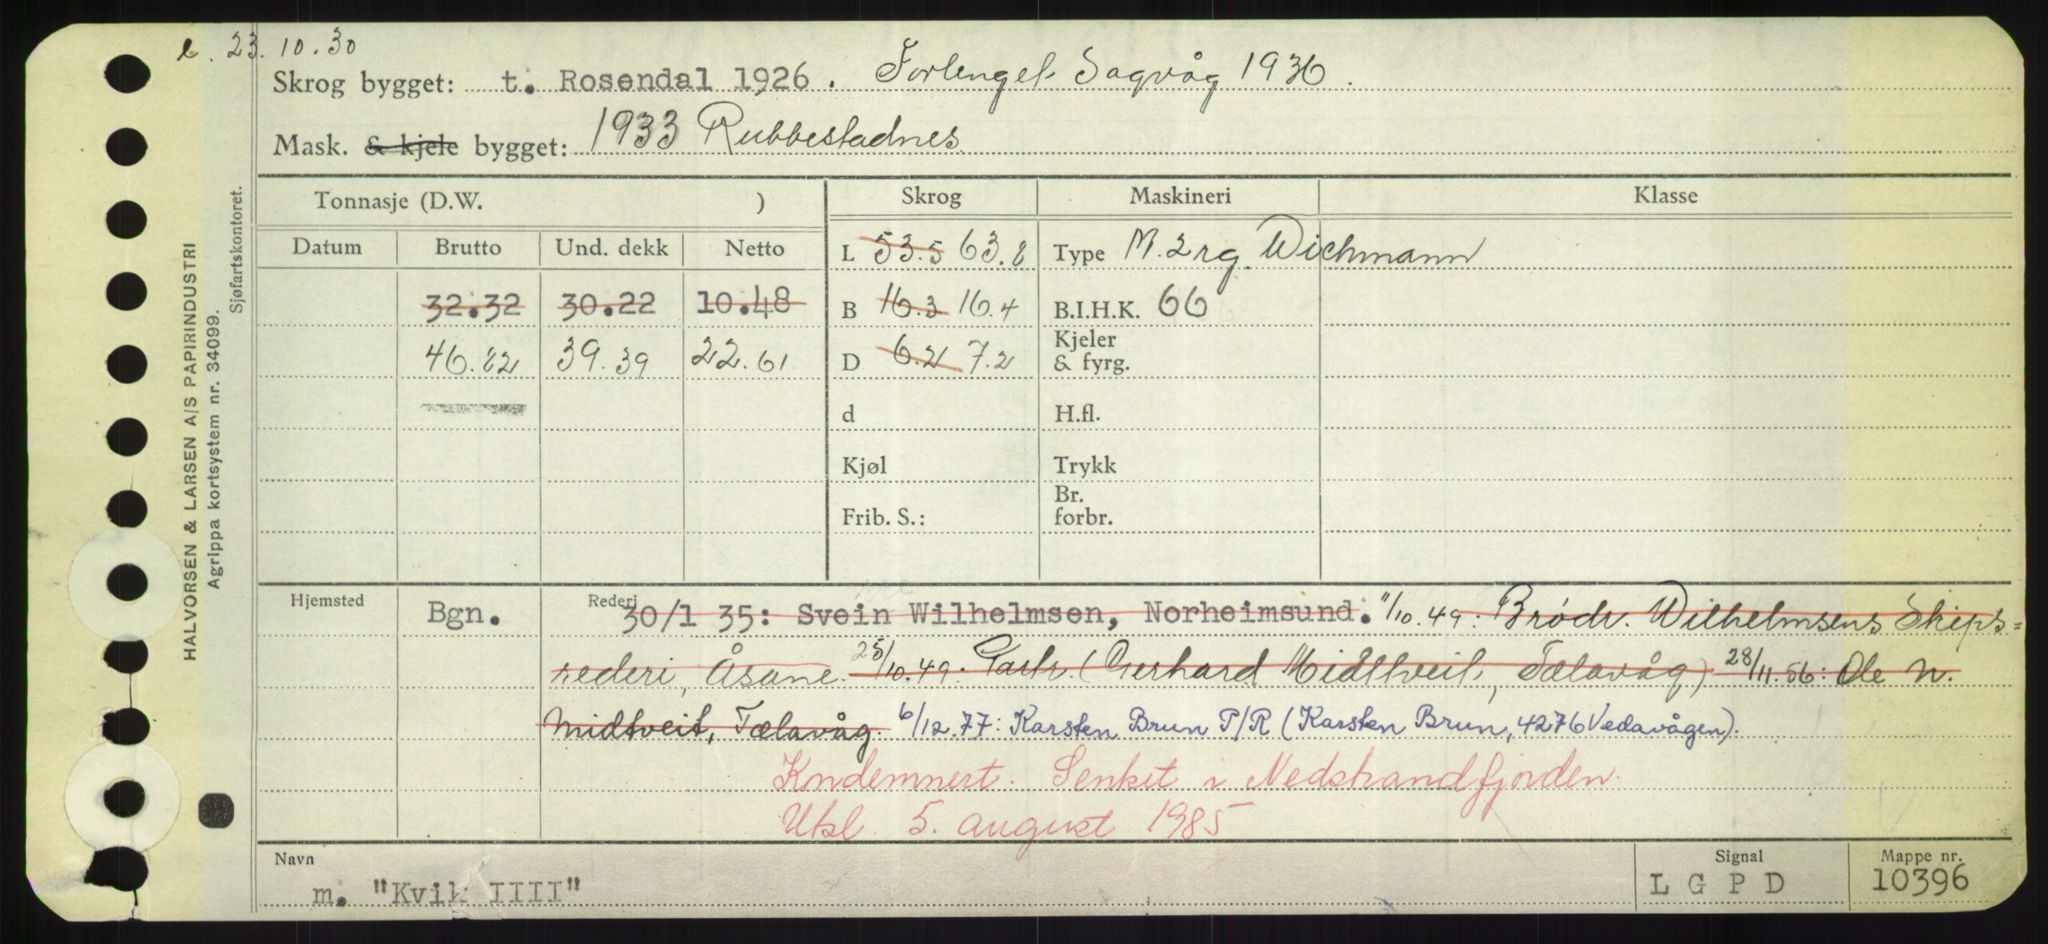 e. 23.10.30
Skrog bygget: t. Rosendal 1926. Forlenget Sagvåg 1936.
Mask. & kjele bygget: 1933 Rubbestadnes.
Tonnasje (D.W. ) Skrog Maskineri Klasse
Datum Brutto Und. dekk Netto L 53.5 63.8 Type M. 2 rg. Wichmann
32.32 30.22 10.48 B 16.3 16.4 B.I.H.K. 66
46.82 39.39 22.61 D 6.2 7.2 Kjeler & fyrg.
d H.fl.
Kjøl Trykk
Frib. S.: Br. forbr.
Hjemsted Bgn. Rederi 30/1 35: Svein Wilhelmsen, Norheimsund. 11/10.49: Brødr. Wilhelmsens Skips=
rederi, Åsane. 25/10.49: Partr. (Gerhard Midttveit, Tælavåg) 28/11.56: Ole N.
Midtveit, Tælavåg. 6/12.77: Karsten Brun P/R (Karsten Brun, 4276 Vedavågen).
Kondemnert. Senket i Nedstrandfjorden.
Utsl. 5. august 1985
Navn Signal Mappe nr.
m. "Kvik IIII" L G P D 10396
HALVORSEN & LARSEN A/S PAPIRINDUSTRI
Agrippa kortsystem nr. 34099.
Sjøfartskontoret.